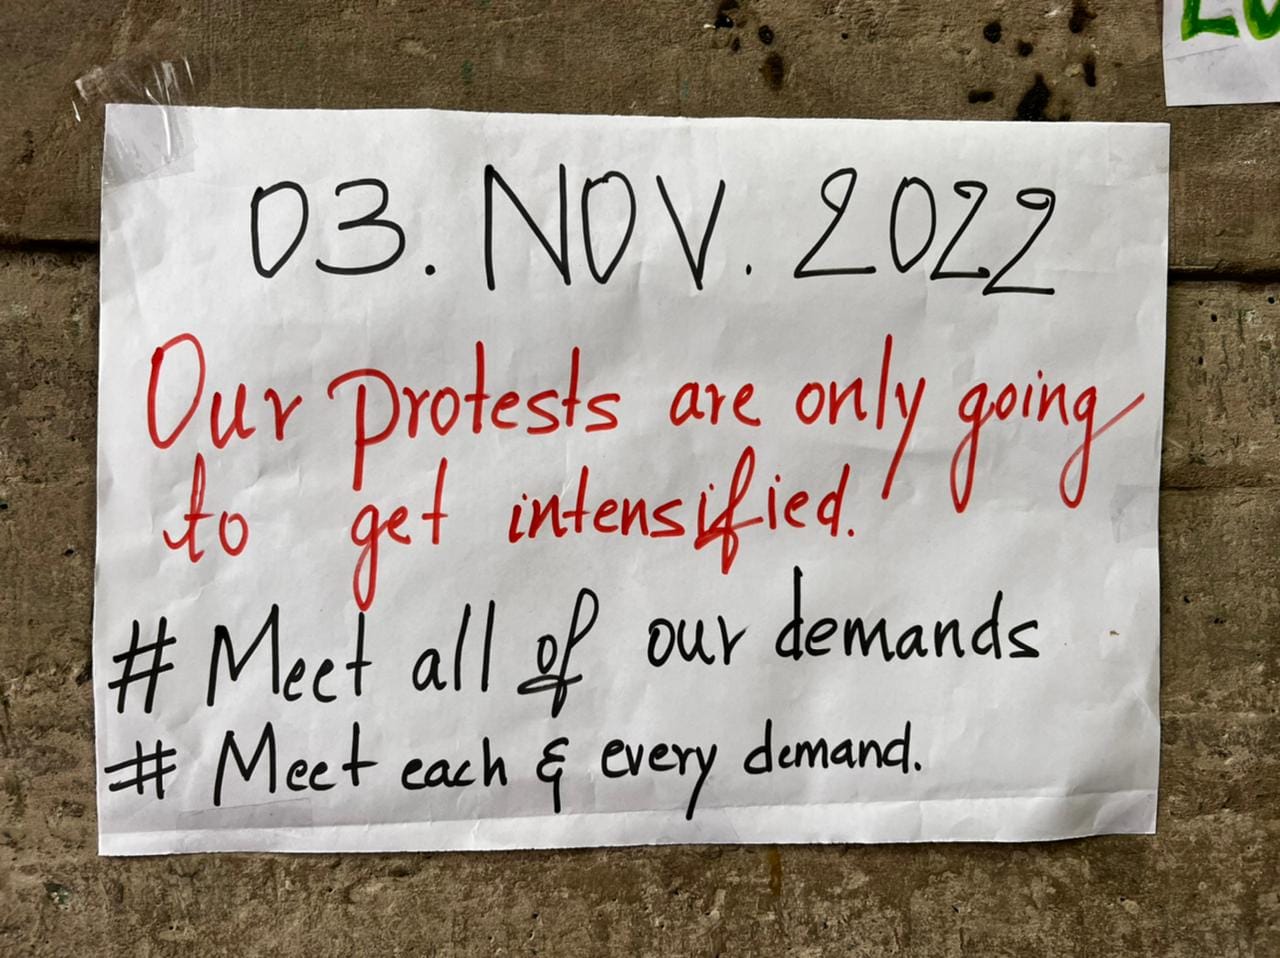 03. NOV. 2022
Our protests are only going
to get intensified.
# Meet all of our demands
# Meet each & every demand.